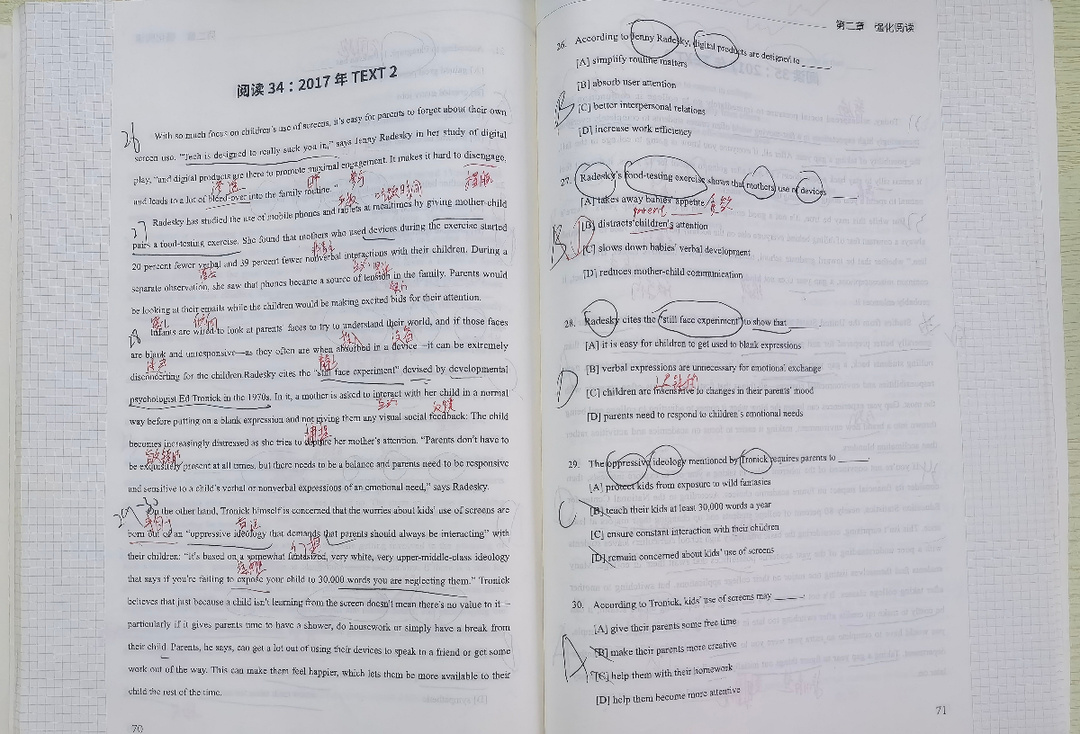 阅读 34：2017 年 TEXT 2
26
With so much focus on children's use of screens, it's easy for parents to forget about their own
screen use. "Tech is designed to really suck you in," says Jenny Radesky in her study of digital
play, "and digital products are there to promote maximal engagement. It makes it hard to disengage,
and leads to a lot of bleed-over into the family routine."
27
Radesky has studied the use of mobile phones and tablets at mealtimes by giving mother-child
pairs a food-testing exercise. She found that mothers who used devices during the exercise started
20 percent fewer verbal and 39 percent fewer nonverbal interactions with their children. During a
separate observation, she saw that phones became a source of tension in the family. Parents would
be looking at their emails while the children would be making excited bids for their attention.
28
Infants are wired to look at parents' faces to try to understand their world, and if those faces
are blank and unresponsive—as they often are when absorbed in a device —it can be extremely
disconcerting for the children Radesky cites the "still face experiment" devised by developmental
psychologist Ed Tronick in the 1970s. In it, a mother is asked to interact with her child in a normal
way before putting on a blank expression and not giving them any visual social feedback: The child
becomes increasingly distressed as she tries to capture her mother's attention. "Parents don't have to
be exquisitely present at all times, but there needs to be a balance and parents need to be responsive
and sensitive to a child's verbal or nonverbal expressions of an emotional need," says Radesky.
On the other hand, Tronick himself is concerned that the worries about kids' use of screens are
born out of an "oppressive ideology that demands that parents should always be interacting" with
their children: "it's based on a somewhat fantasized, very white, very upper-middle-class ideology
that says if you're failing to expose your child to 30,000 words you are neglecting them." Tronick
believes that just because a child isn't learning from the screen doesn't mean there's no value to it –
particularly if it gives parents time to have a shower, do housework or simply have a break from
their child. Parents, he says, can get a lot out of using their devices to speak to a friend or get some
work out of the way. This can make them feel happier, which lets them be more available to their
child the rest of the time.
70
第二章 强化阅读
26. According to Jenny Radesky, digital products are designed to _____
[A] simplify routine matters
[B] absorb user attention
B
[C] better interpersonal relations
[D] increase work efficiency
27. Radesky's food-testing exercise shows that mothers' use of devices _____
[A] takes away babies' appetite
[B] distracts children's attention
[C] slows down babies' verbal development
[D] reduces mother-child communication
28. Radesky cites the "still face experiment" to show that _____
[A] it is easy for children to get used to blank expressions
[B] verbal expressions are unnecessary for emotional exchange
D
[C] children are insensitive to changes in their parents' mood
[D] parents need to respond to children's emotional needs
29. The oppressive ideology mentioned by Tronick requires parents to _____.
[A] protect kids from exposure to wild fantasies
C
[B] teach their kids at least 30,000 words a year
[C] ensure constant interaction with their children
[D] remain concerned about kids' use of screens
30. According to Tronick, kids' use of screens may _____.
[A] give their parents some free time
A
[B] make their parents more creative
[C] help them with their homework
[D] help them become more attentive
71